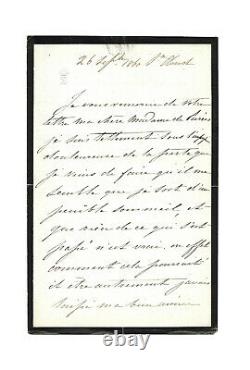 26 Sept 1860 St Cloud
Je vous remercie de votre
lettre ma chère Madame de
je suis tellement sous
douloureuse de la perte que
je viens de faire qu'il me
semble que je sors d'un
pénible sommeil, et
que rien de ce qui s'est
passé n'est vrai, en effet
comment cela pourrait
il être autrement j'avais
laissé ma bonne
ebay.com